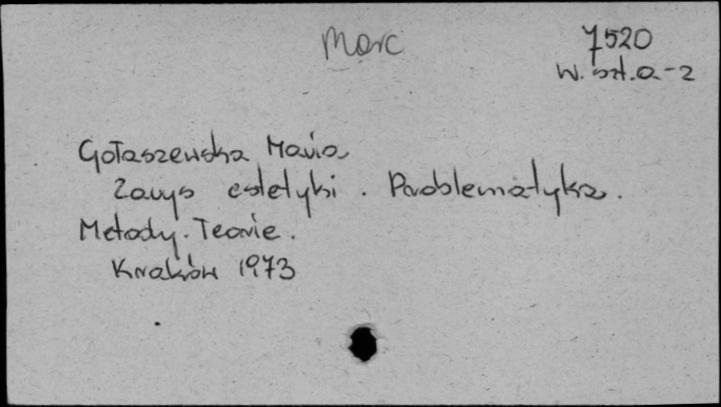 Marc
7520
W. szt. a-z
Gołaszewska Maria
Zarys estetyki. Problematyka.
Metody. Teorie.
Kraków 1973